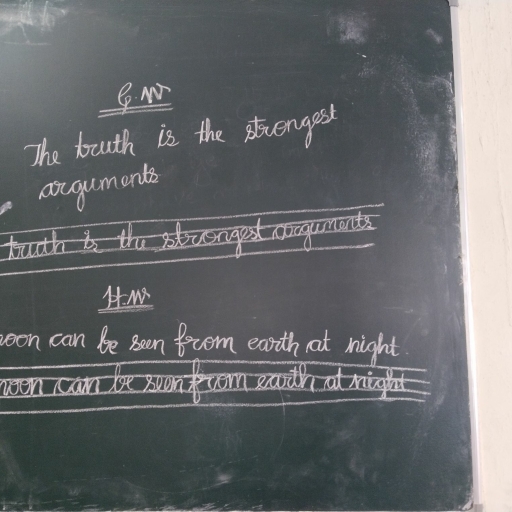 C.W
The truth is the strongest
arguments
truth is the strongest arguments
H.W
moon can be seen from earth at night.
moon can be seen from earth at night